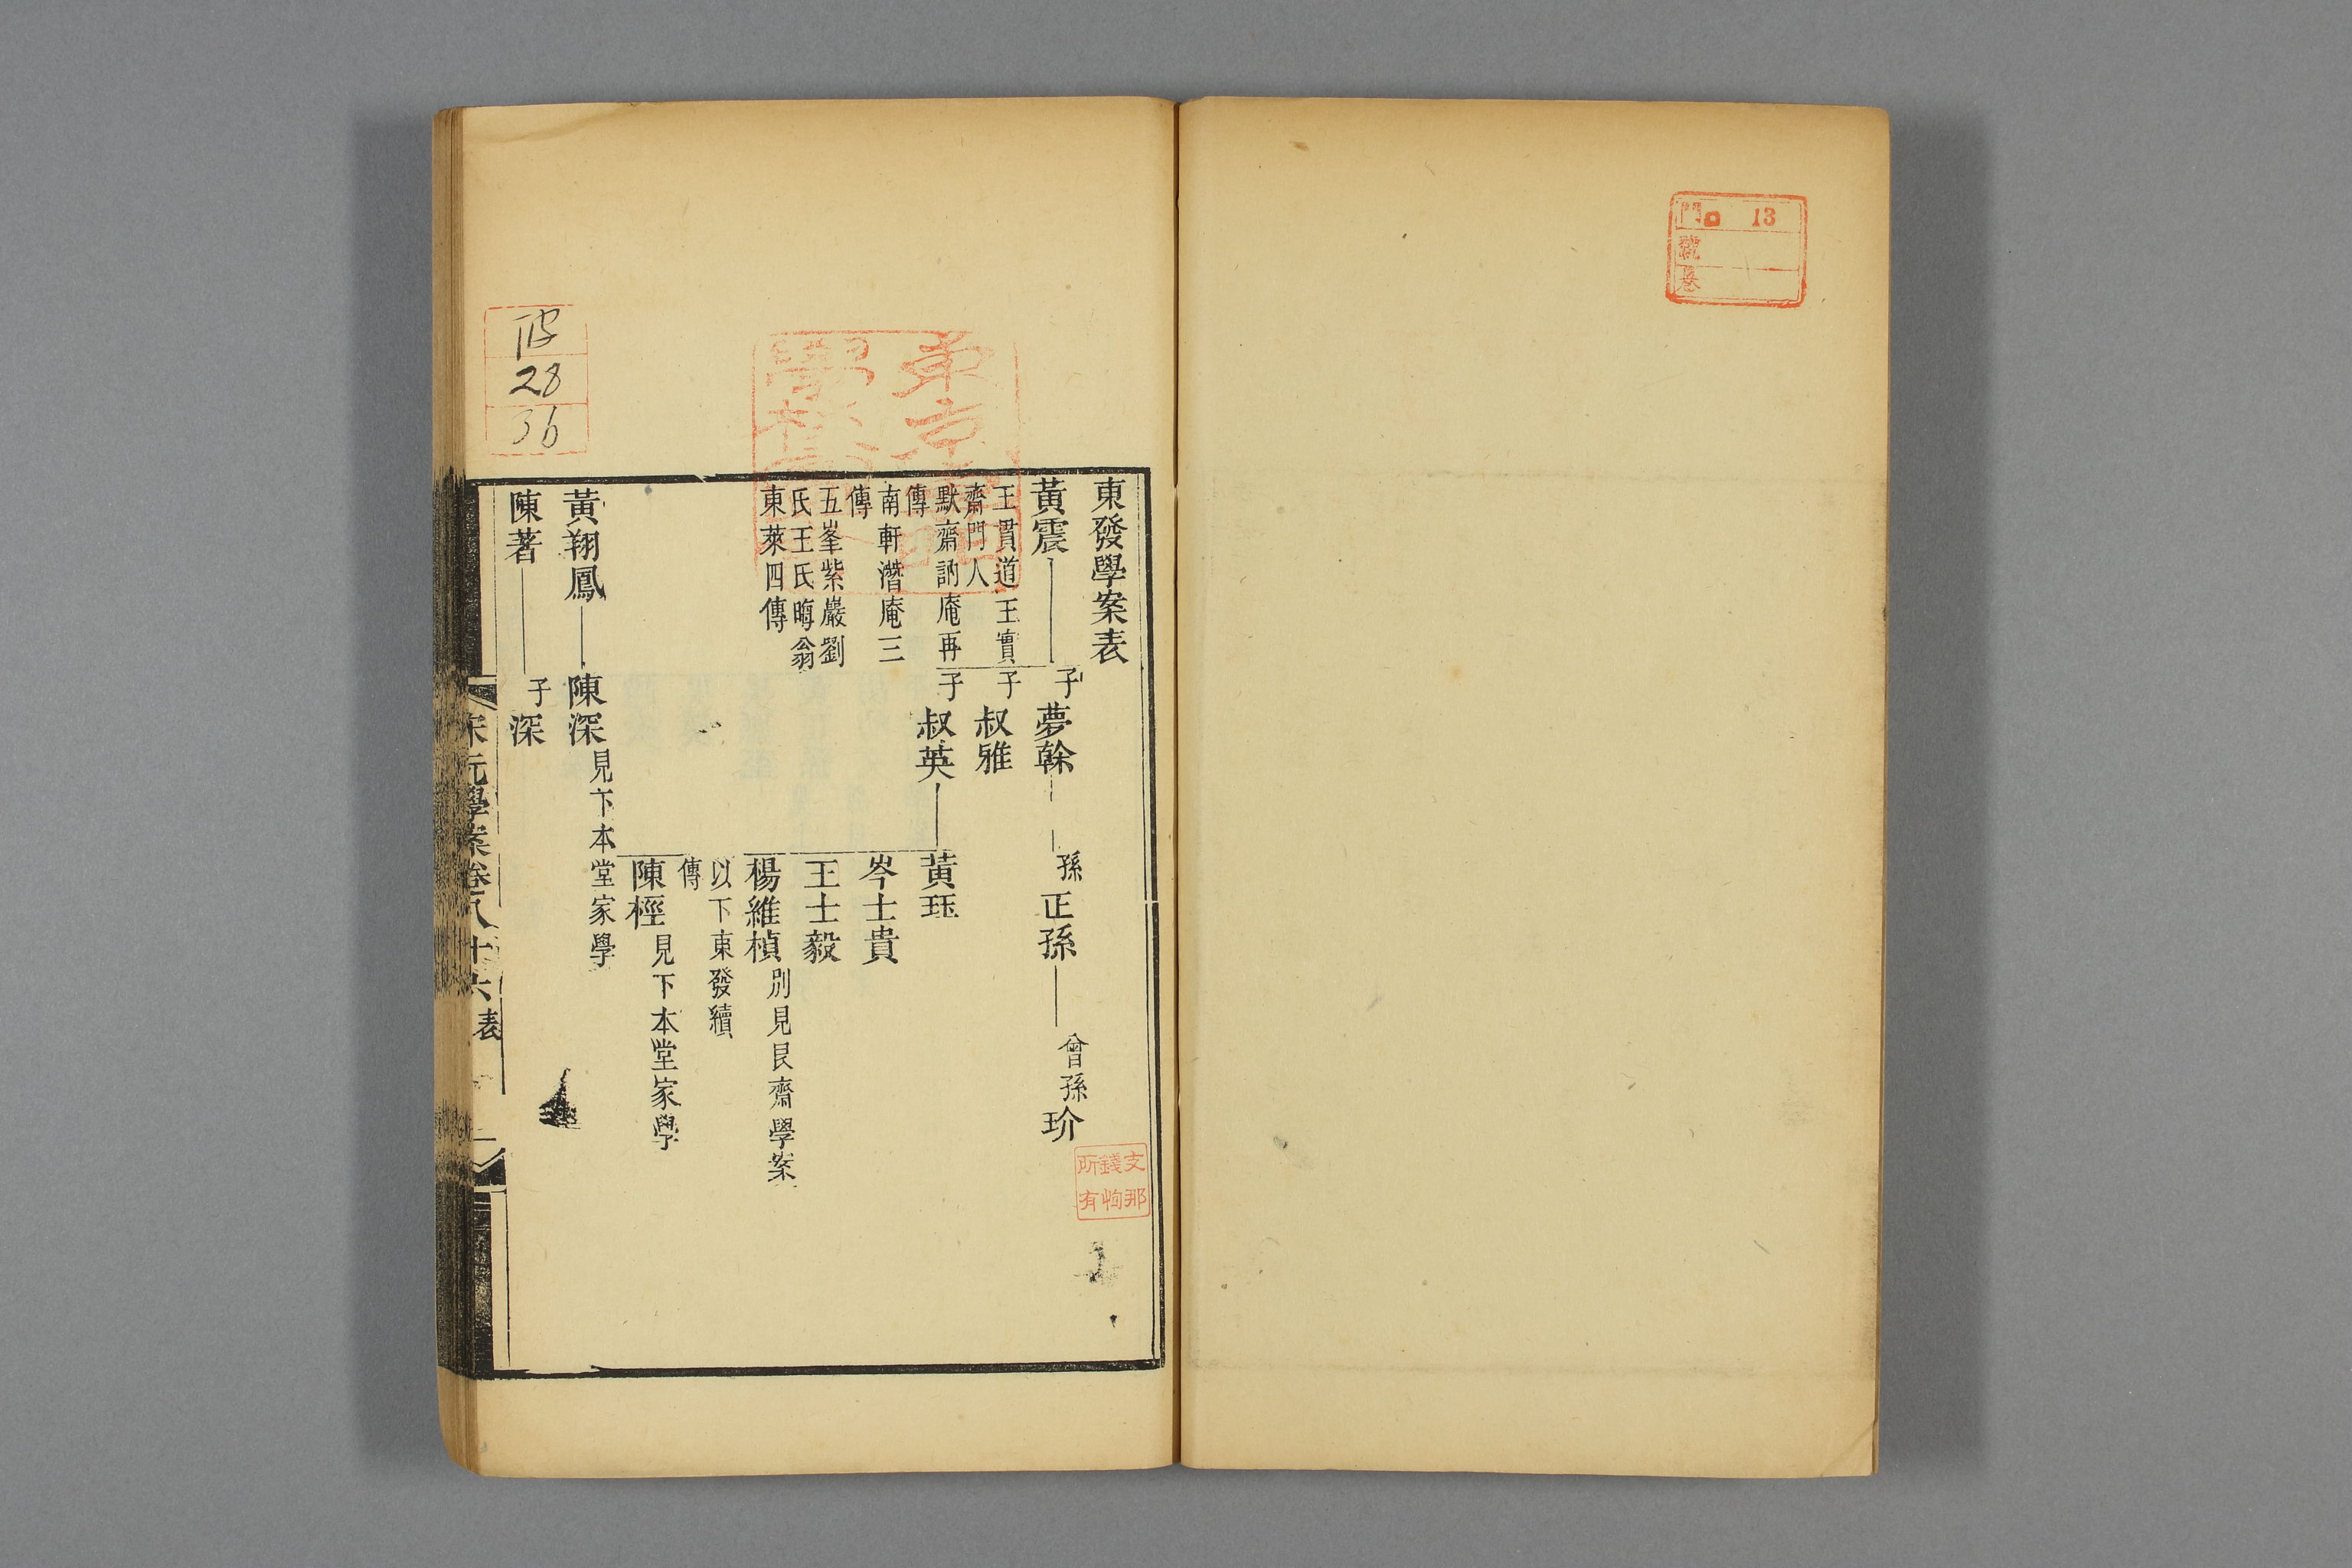 門 13
號
卷
東發學案表
黃震
子夢榦
孫正孫
曾孫玠
王貫道王實
齋門人
子叔雅
默齋訥庵再
傳
子叔英
黃珏
南軒潛庵三
傳
岑士貴
五峯紫巖劉
氏王氏晦翁
東萊四傳
王士毅
楊維楨別見艮齋學案
以下東發續
傳
陳桱見下本堂家學
黃翔鳳
陳深見下本堂家學
陳著
子深
宋元學案卷八十六表
一
支那
錢恂
所有
28
36